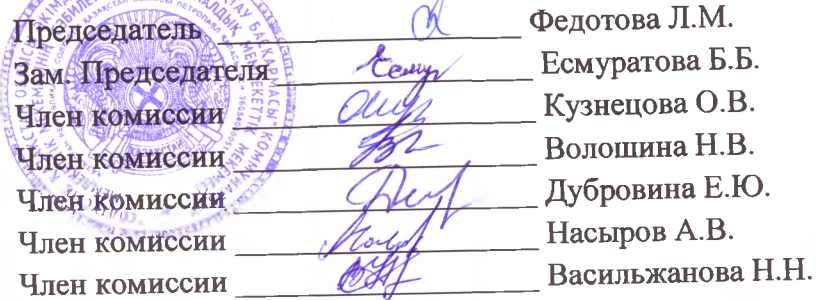 Председатель Федотова Л.М.
Зам. Председателя Есмуратова Б.Б.
Член комиссии Кузнецова О.В.
Член комиссии Волошина Н.В.
Член комиссии Дубровина Е.Ю.
Член комиссии Насыров А.В.
Член комиссии Васильжанова Н.Н.